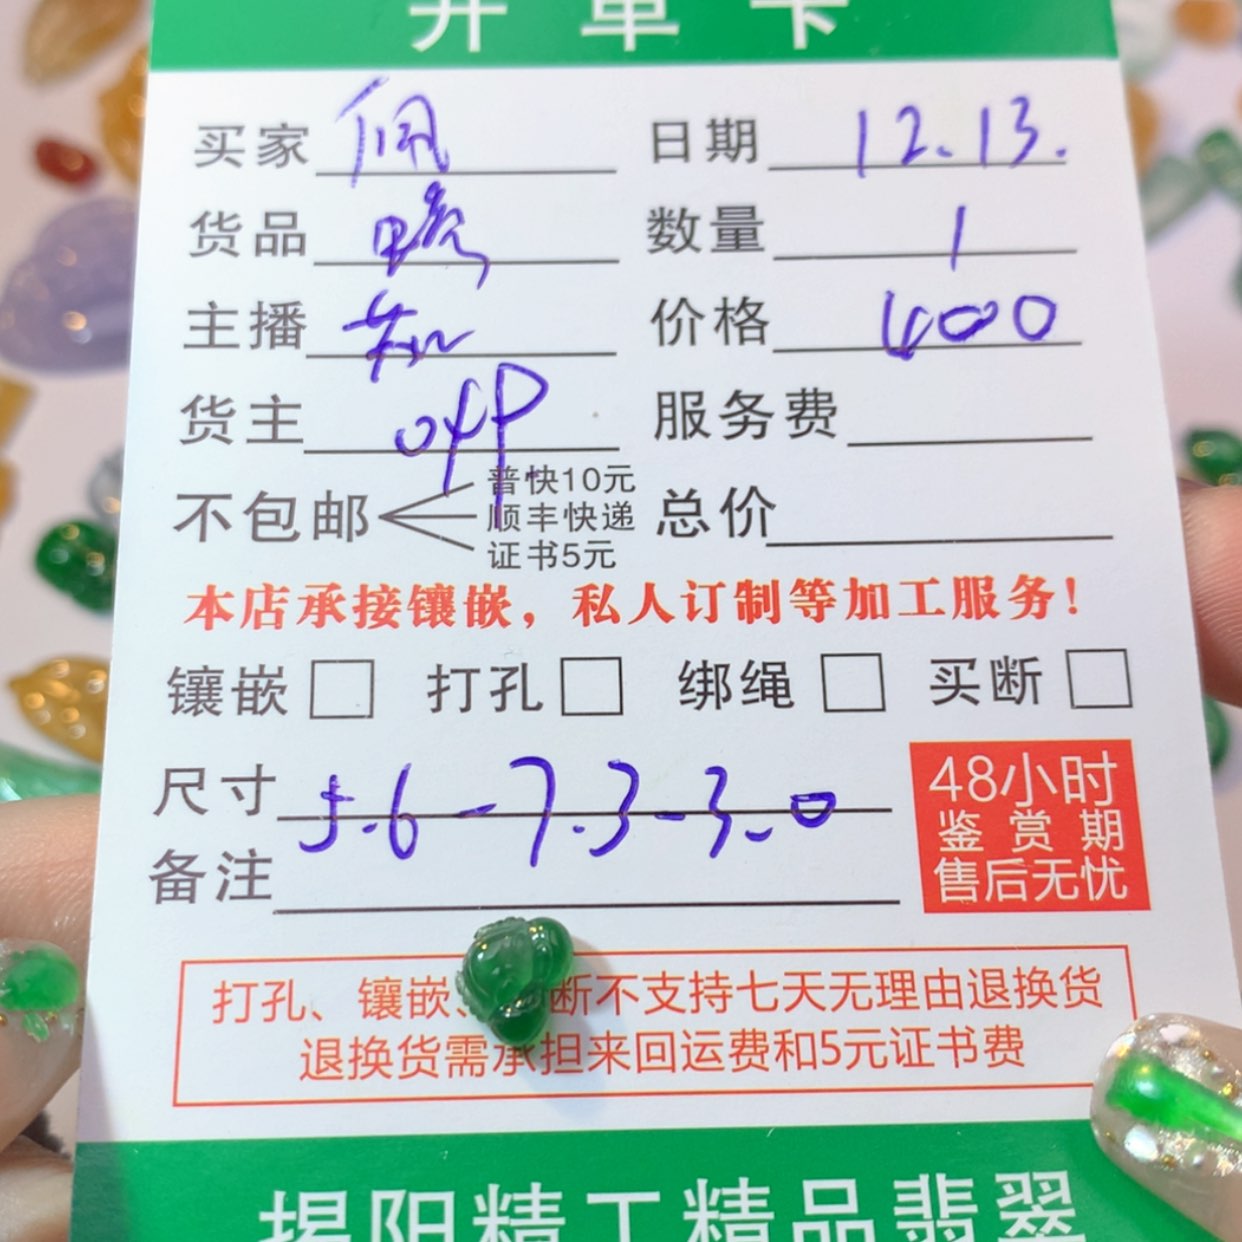 开单卡
买家 佩 日期 12.13.
货品 数量 1
主播 知 价格 600
货主 服务费
不包邮 普快10元 顺丰快递 证书5元 总价
本店承接镶嵌，私人订制等加工服务！
镶嵌 打孔 绑绳 买断
尺寸 5.6-7.3-3.0
备注
48小时
鉴赏期
售后无忧
打孔、镶嵌、断不支持七天无理由退换货
退换货需承担来回运费和5元证书费
揭阳精工精品翡翠